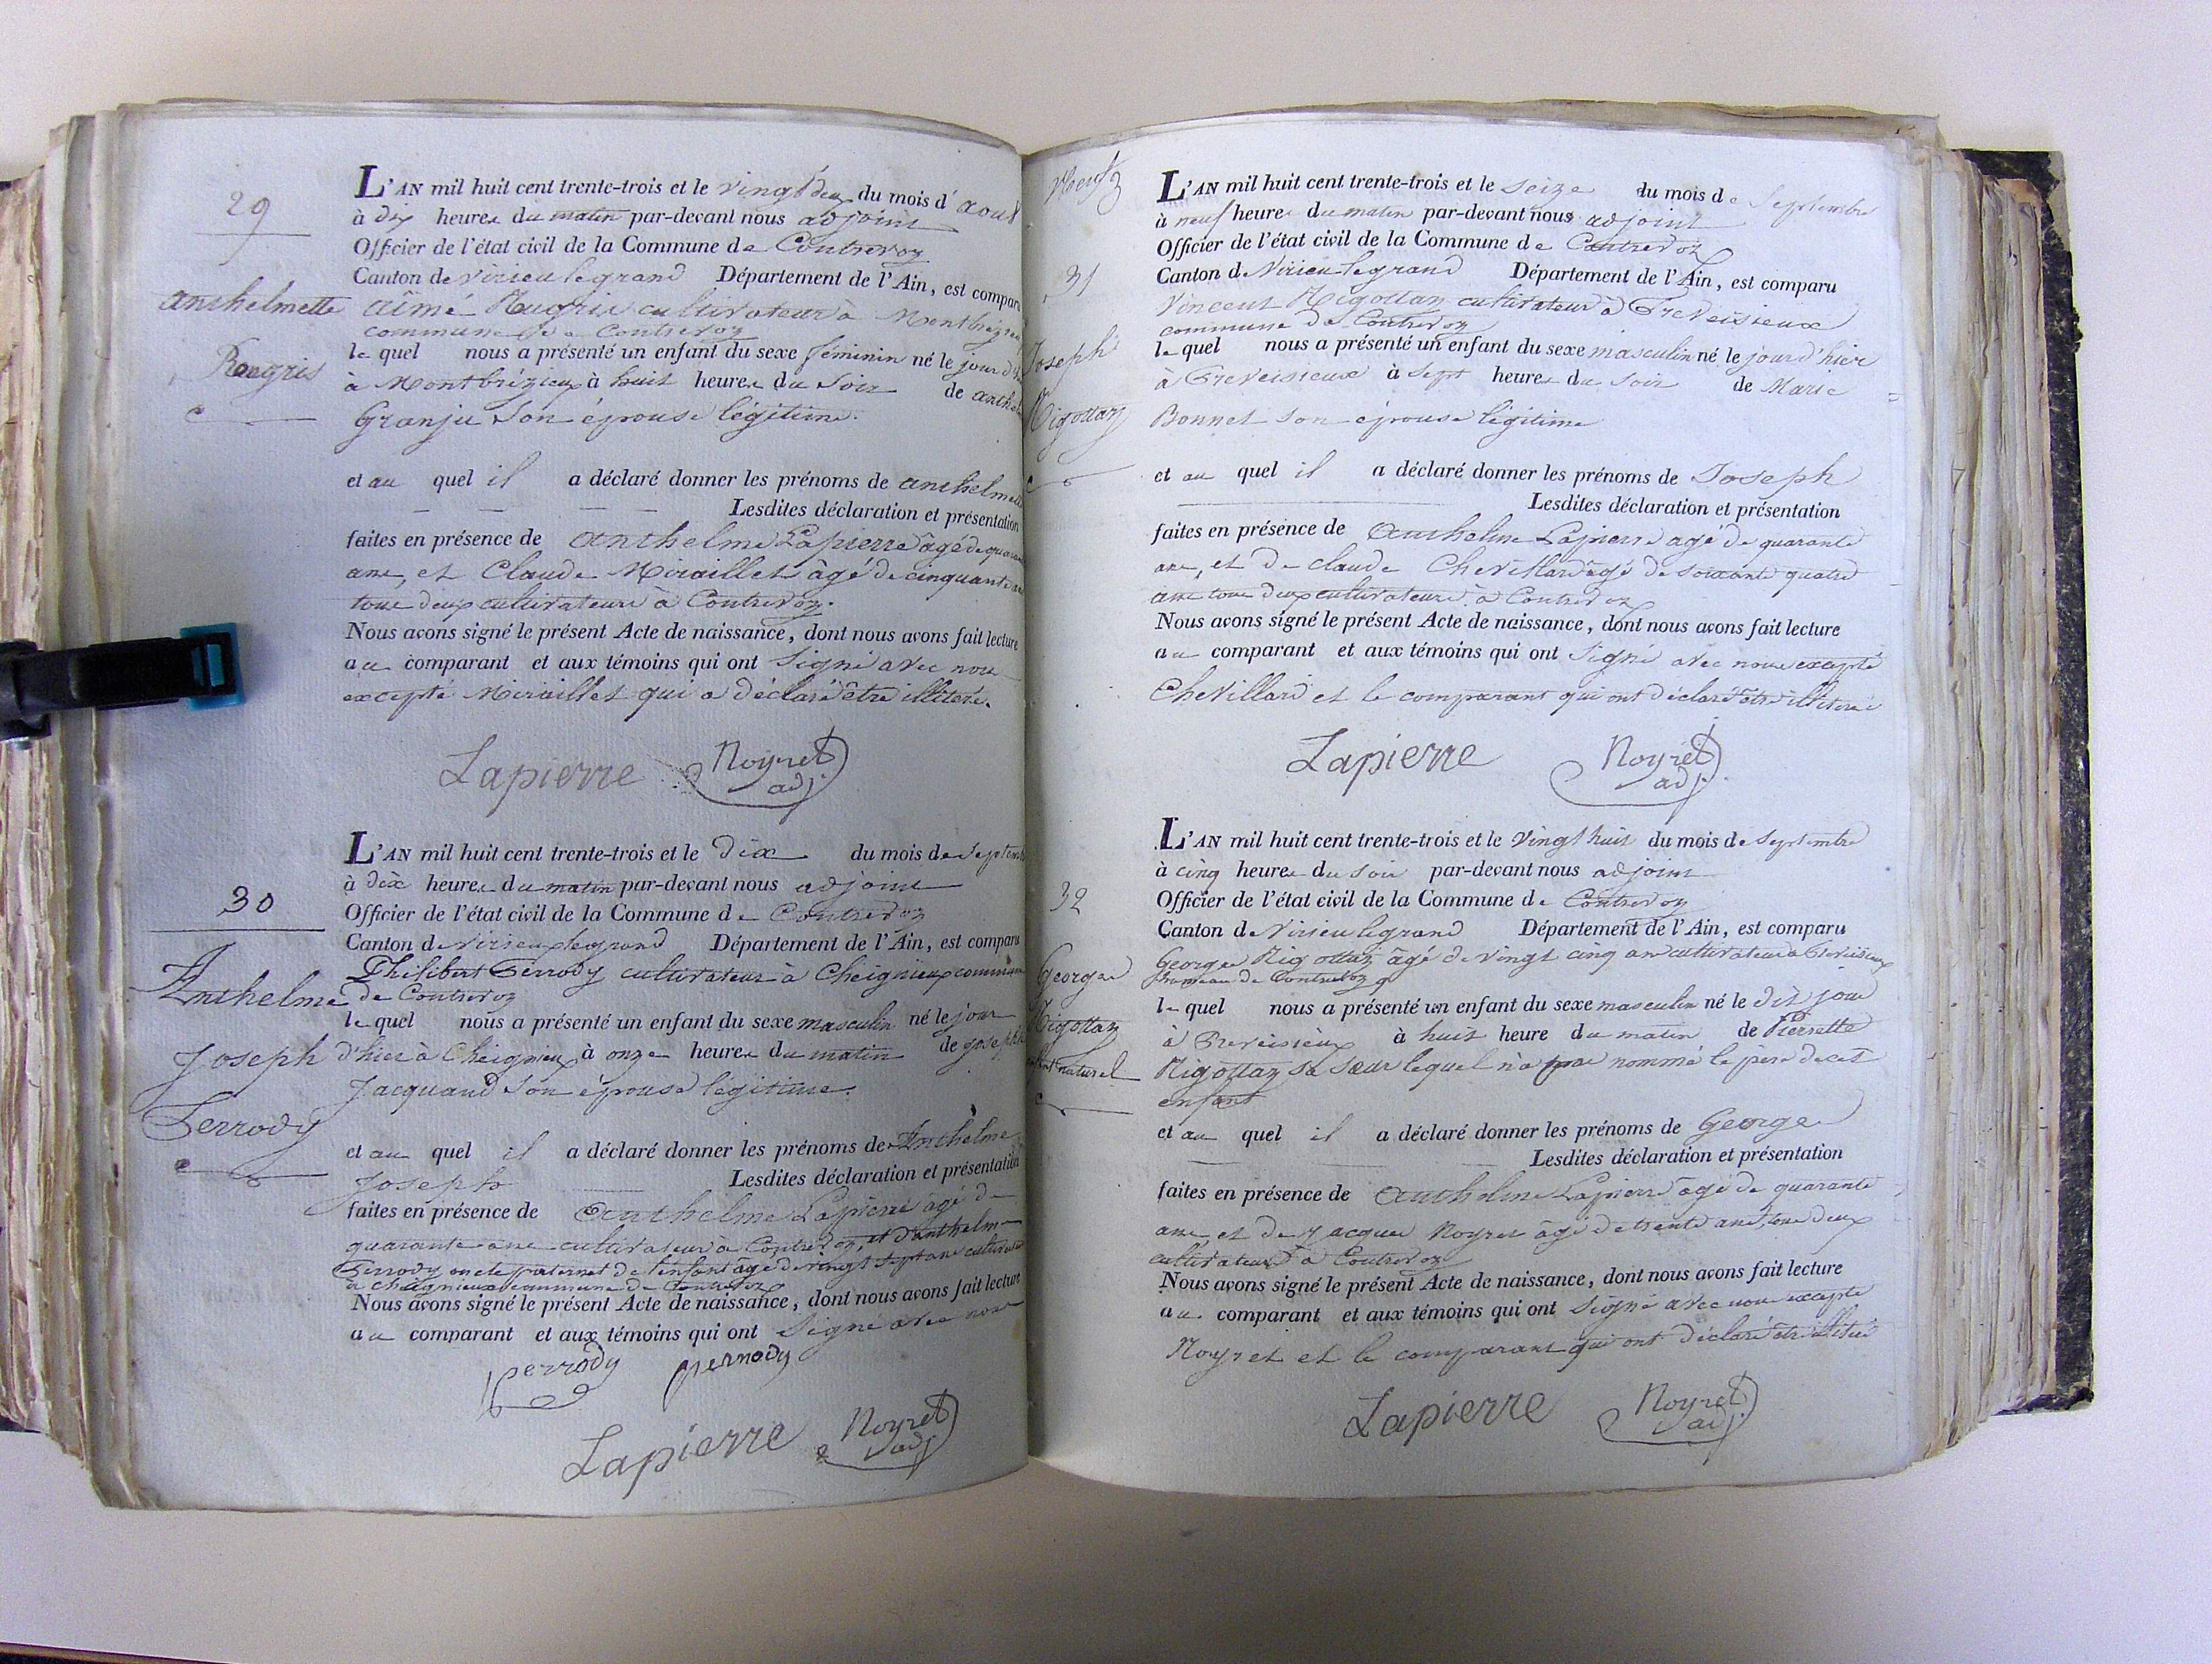 29
anthelmette
Rougris
L'AN mil huit cent trente-trois et le vingt deux du mois d'aout
à dix heures du matin par-devant nous adjoint
Officier de l'état civil de la Commune de Contrevoz
Canton de virieu le grand Département de l'Ain, est comparu
aîmé Rougris cultivateur à Montbrézieu
commune de Contrevoz
le quel nous a présenté un enfant du sexe féminin né le jour d'hier
à Montbrézieux à huit heures du soir de anthel
Granju son épouse légitime.
et au quel il a déclaré donner les prénoms de anthelmette
Lesdites déclaration et présentation
faites en présence de anthelme Lapierre âgé de quarante
ans, et Claude Miraillet âgé de cinquante ans
tous deux cultivateurs à Contrevoz.
Nous avons signé le présent Acte de naissance, dont nous avons fait lecture
au comparant et aux témoins qui ont signé avec nous
excepté Miraillet qui a déclaré être illiteré.
Lapierre Noyret
adj.
30
Anthelme
Joseph
Perrody
L'AN mil huit cent trente-trois et le dix du mois de septemb
à dix heures du matin par-devant nous adjoint
Officier de l'état civil de la Commune de Contrevoz
Canton de virieux legrand Département de l'Ain, est comparu
Philibert Perrody cultivateur à Cheignieux commune
de Contrevoz
le quel nous a présenté un enfant du sexe masculin né le jour
d'hier à Cheignieux à onze heures du matin de josephte
Jacquand son épouse légitime.
et au quel il a déclaré donner les prénoms de Anthelme
Joseph Lesdites déclaration et présentation
faites en présence de anthelme Lapierre âgé de
quarante ans cultivateur à Contrevoz, et d'anthelme
Perrody oncle paternel de l'enfant âgé de vingt sept ans cultivateur
à cheignieux commune de Contrevoz
Nous avons signé le présent Acte de naissance, dont nous avons fait lecture
au comparant et aux témoins qui ont signé avec nous
perrody perrody
Lapierre Noyret
adj
31
Joseph
Rigottaz
L'AN mil huit cent trente-trois et le seize du mois de septembre
à neuf heures du matin par-devant nous adjoint
Officier de l'état civil de la Commune de Contrevoz
Canton de Virieu le grand Département de l'Ain, est comparu
Vincent Rigottaz cultivateur à Preveisieux
commune de Contrevoz
le quel nous a présenté un enfant du sexe masculin né le jour d'hier
à Preveisieux à sept heures du soir de Marie
Bonnet son épouse légitime
et au quel il a déclaré donner les prénoms de Joseph
Lesdites déclaration et présentation
faites en présence de anthelme Lapierre agé de quarante
ans, et de claude Chevillard âgé de soixante quatre
ans tous deux cultivateurs à Contrevoz
Nous avons signé le présent Acte de naissance, dont nous avons fait lecture
au comparant et aux témoins qui ont signé avec nous excepté
Chevillard et le comparant qui ont déclaré être illiterés
Lapierre Noyret
adj.
32
George
Rigottaz
naturel
L'AN mil huit cent trente-trois et le vingt huit du mois de septembre
à cinq heures du soir par-devant nous adjoint
Officier de l'état civil de la Commune de Contrevoz
Canton de Virieu legrand Département de l'Ain, est comparu
George Rigottaz âgé de vingt cinq ans cultivateur à Preveisieux
hameau de Contrevoz
le quel nous a présenté un enfant du sexe masculin né le dit jour
à Preveisieux à huit heure du matin de Pierrette
Rigottaz sa sœur lequel n'a pas nommé le père de cet
enfant
et au quel il a déclaré donner les prénoms de George
Lesdites déclaration et présentation
faites en présence de anthelme Lapierre âgé de quarante
ans, et de jacques Noyret âgé de trente ans, tous deux
cultivateurs à Contrevoz
Nous avons signé le présent Acte de naissance, dont nous avons fait lecture
au comparant et aux témoins qui ont signé avec nous excepté
Noyret et le comparant qui ont déclaré être illiteré
Lapierre Noyret
adj.